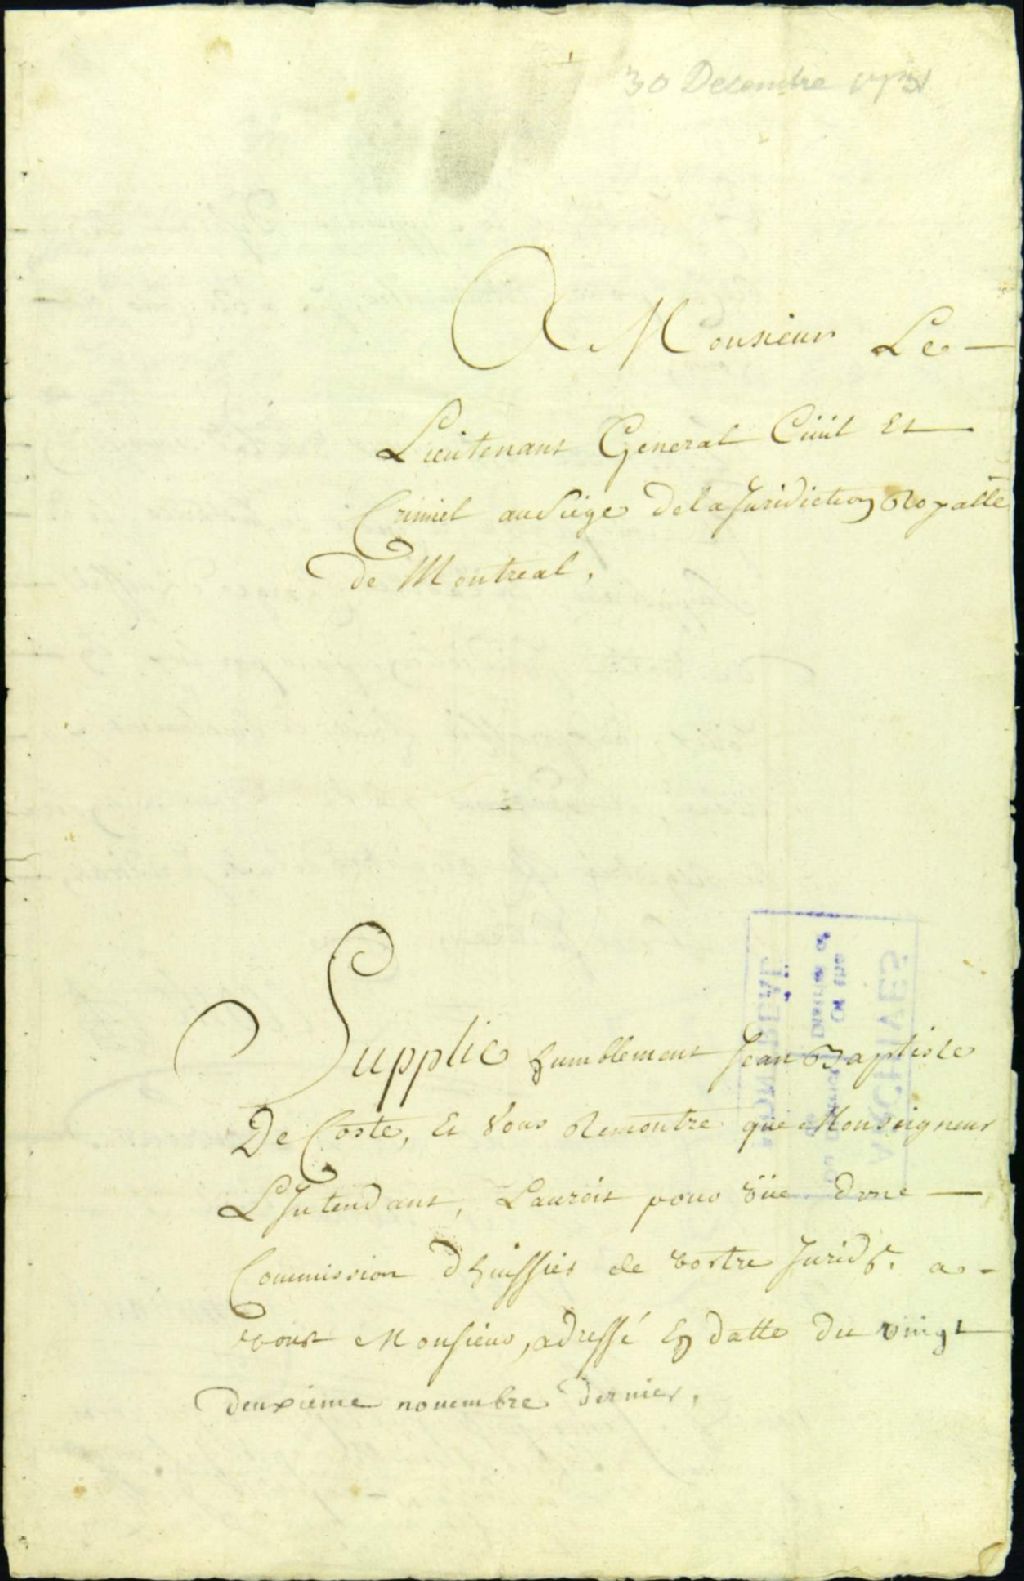 30 Decembre 1731
A Monsieur Le
Lieutenant General Ciüil Et
Crimel au Siége de la Juridiction Royalle
de Montreal,
Supplie humblement Jean Baptiste
De Coste, Et Vous Remontre que Monseigneur
L'Intendant, L'auroit pourvüe d'une
Commission d'huissier de vostre Jurid.on a
vous Monsieur, adressé En datte du vingt
deuxieme novembre dernier,
ARCHIVES
Of the
District of
MONTREAL